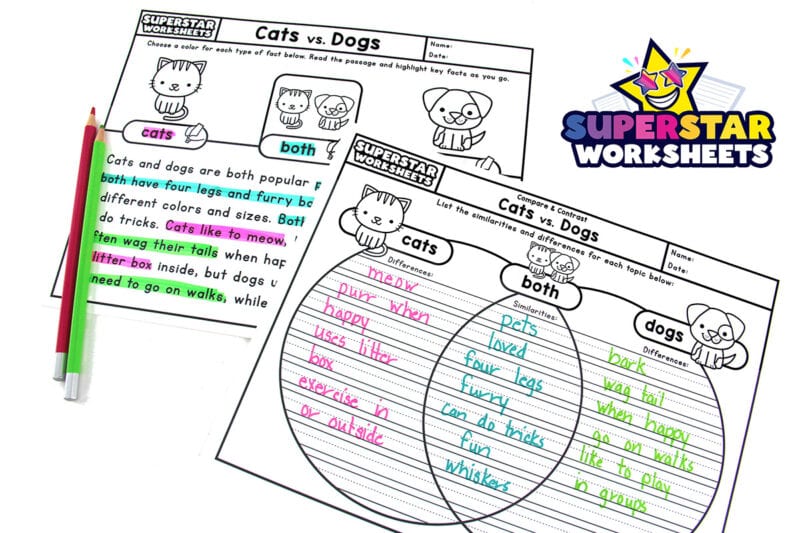 SUPERSTAR
WORKSHEETS
Cats vs. Dogs
Name:
Date:
Choose a color for each type of fact below. Read the passage and highlight key facts as you go.
cats
both
Cats and dogs are both popular
both have four legs and furry
different colors and sizes. Both
do tricks. Cats like to meow,
often wag their tails when
litter box inside, but dogs
need to go on walks, while
SUPERSTAR
WORKSHEETS
Compare & Contrast
Cats vs. Dogs
Name:
Date:
List the similarities and differences for each topic below:
cats
Differences:
meow
purr when
happy
uses litter
box
exercise in
or outside
both
Similarities:
pets
loved
four legs
furry
can do tricks
fun
whiskers
dogs
Differences:
bark
wag tail
when happy
go on walks
like to play
in groups
SUPERSTAR
WORKSHEETS